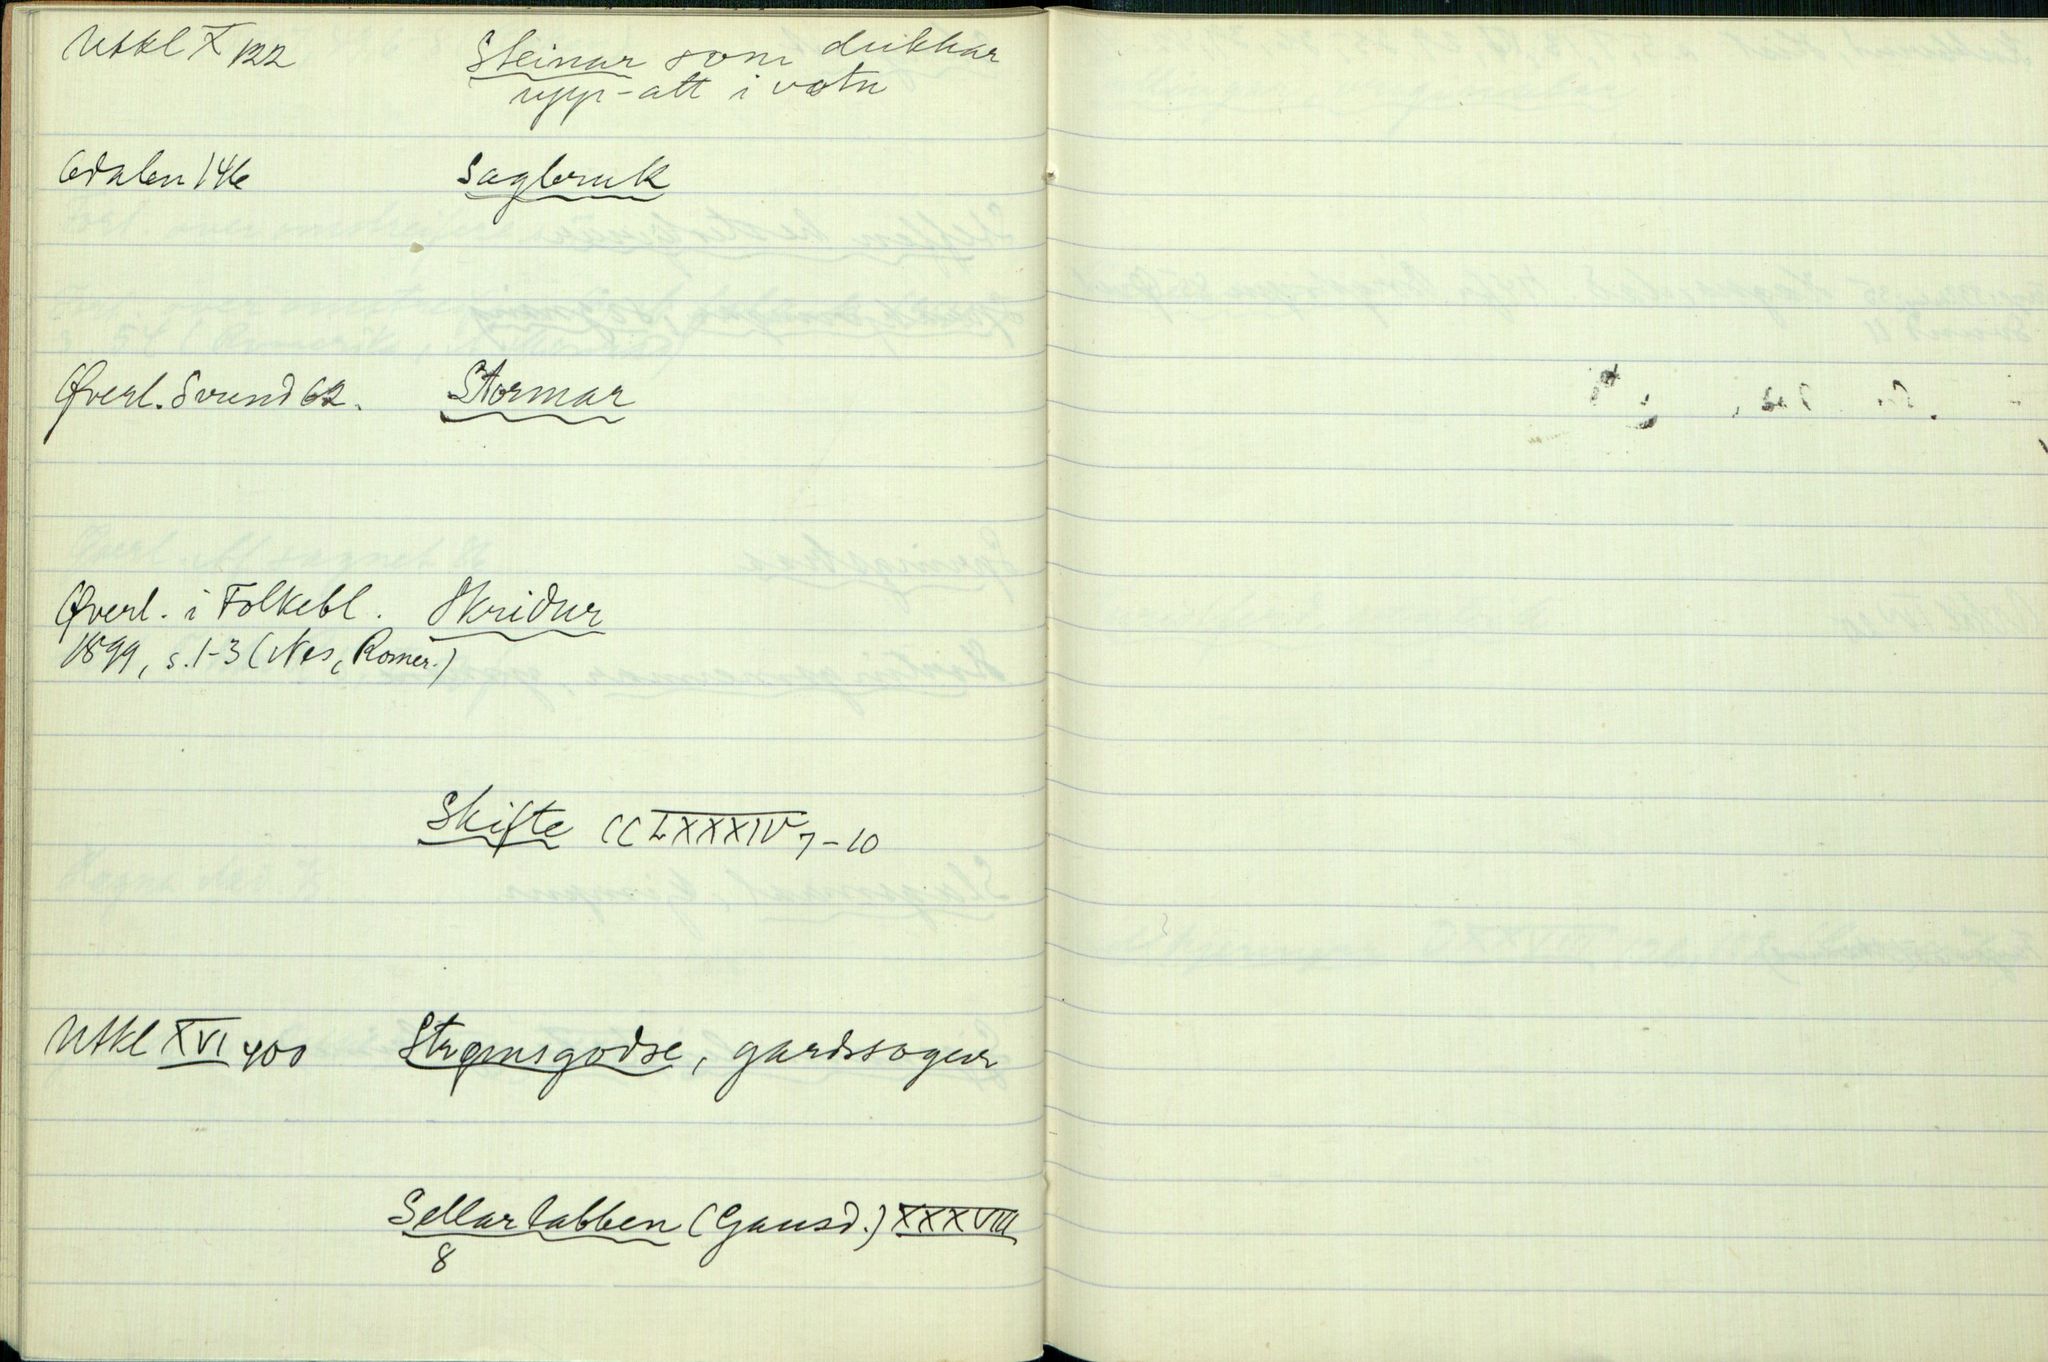 Utkl X 122 Steinar som dukkar
upp-att i vatn
Odalen 146 Sagbruk
Øverl. Svund 62. Stormar
Øverl. i Folkebl. Skridur
1899, s. 1-3 (Nes, Romer.)
Skifte CCLXXXIV 7-10
Utkl XVI 400 Strømsgodse, gardssogur
Sellartabben (Gausd.) XXXVIII
8